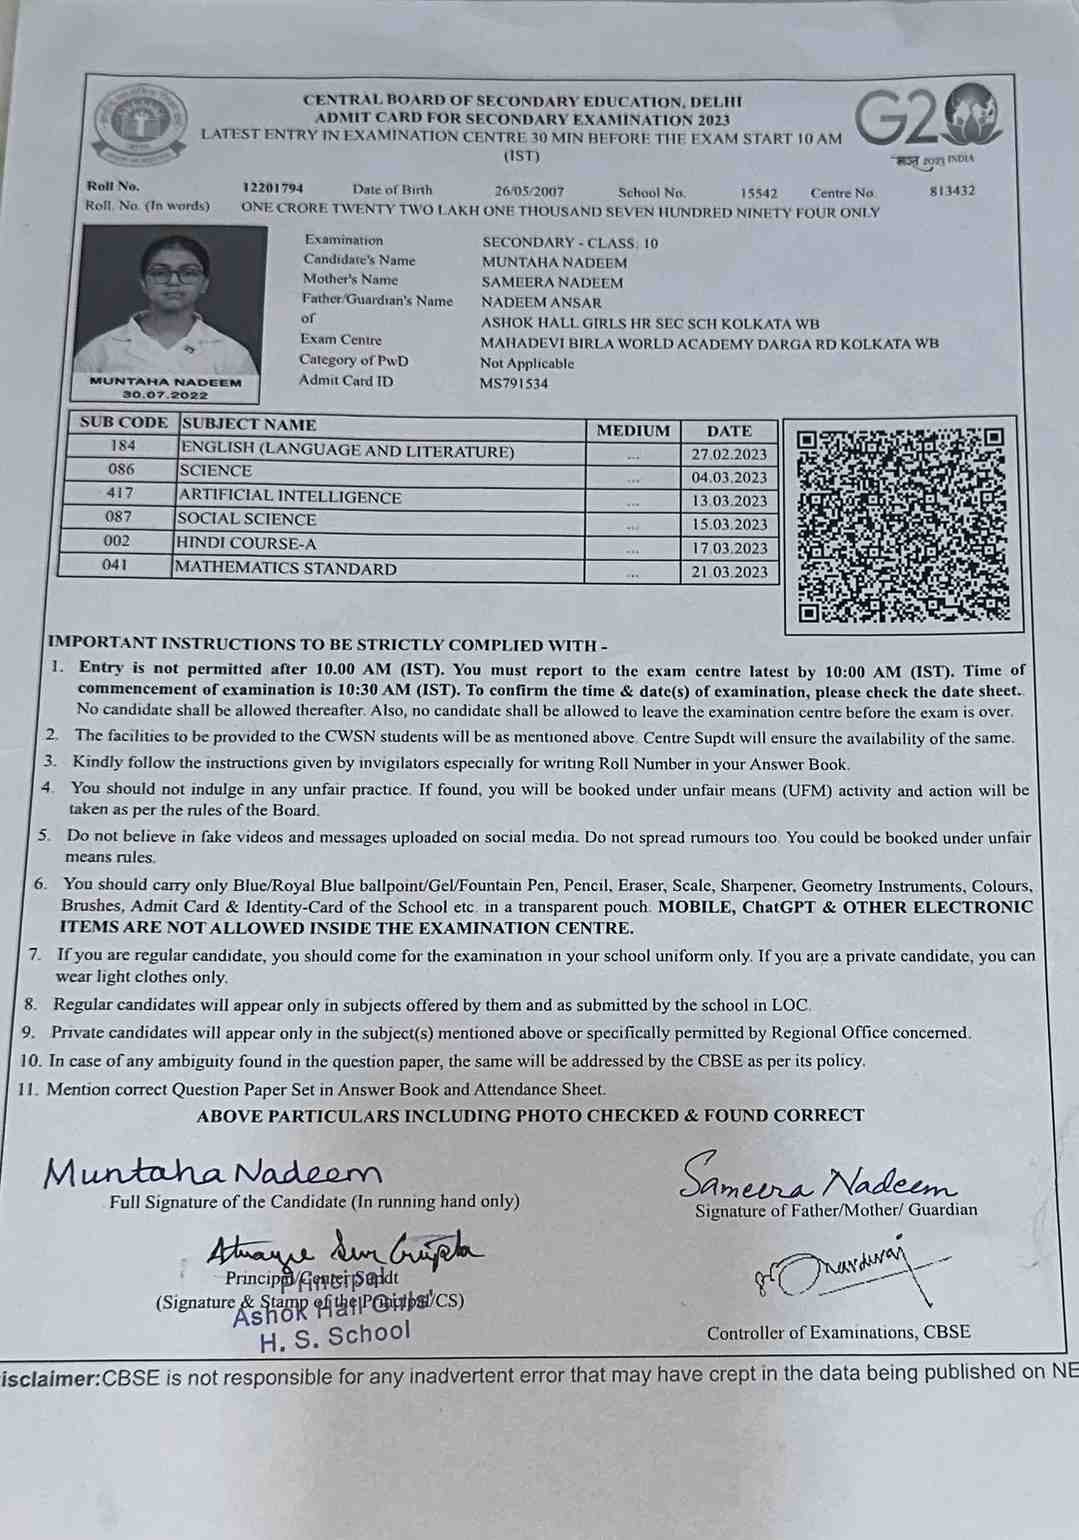 CENTRAL BOARD OF SECONDARY EDUCATION, DELHI
ADMIT CARD FOR SECONDARY EXAMINATION 2023
LATEST ENTRY IN EXAMINATION CENTRE 30 MIN BEFORE THE EXAM START 10 AM
(IST)
G20
भारत 2023 INDIA
Roll No. 12201794 Date of Birth 26/05/2007 School No. 15542 Centre No. 813432
Roll. No. (In words) ONE CRORE TWENTY TWO LAKH ONE THOUSAND SEVEN HUNDRED NINETY FOUR ONLY
Examination SECONDARY - CLASS: 10
Candidate's Name MUNTAHA NADEEM
Mother's Name SAMEERA NADEEM
Father/Guardian's Name NADEEM ANSAR
of ASHOK HALL GIRLS HR SEC SCH KOLKATA WB
Exam Centre MAHADEVI BIRLA WORLD ACADEMY DARGA RD KOLKATA WB
Category of PwD Not Applicable
Admit Card ID MS791534
MUNTAHA NADEEM
30.07.2022
SUB CODE SUBJECT NAME MEDIUM DATE
184 ENGLISH (LANGUAGE AND LITERATURE) ... 27.02.2023
086 SCIENCE ... 04.03.2023
417 ARTIFICIAL INTELLIGENCE ... 13.03.2023
087 SOCIAL SCIENCE ... 15.03.2023
002 HINDI COURSE-A ... 17.03.2023
041 MATHEMATICS STANDARD ... 21.03.2023
IMPORTANT INSTRUCTIONS TO BE STRICTLY COMPLIED WITH -
1. Entry is not permitted after 10.00 AM (IST). You must report to the exam centre latest by 10:00 AM (IST). Time of
commencement of examination is 10:30 AM (IST). To confirm the time & date(s) of examination, please check the date sheet.
No candidate shall be allowed thereafter. Also, no candidate shall be allowed to leave the examination centre before the exam is over.
2. The facilities to be provided to the CWSN students will be as mentioned above. Centre Supdt will ensure the availability of the same.
3. Kindly follow the instructions given by invigilators especially for writing Roll Number in your Answer Book.
4. You should not indulge in any unfair practice. If found, you will be booked under unfair means (UFM) activity and action will be
taken as per the rules of the Board.
5. Do not believe in fake videos and messages uploaded on social media. Do not spread rumours too. You could be booked under unfair
means rules.
6. You should carry only Blue/Royal Blue ballpoint/Gel/Fountain Pen, Pencil, Eraser, Scale, Sharpener, Geometry Instruments, Colours,
Brushes, Admit Card & Identity-Card of the School etc. in a transparent pouch. MOBILE, ChatGPT & OTHER ELECTRONIC
ITEMS ARE NOT ALLOWED INSIDE THE EXAMINATION CENTRE.
7. If you are regular candidate, you should come for the examination in your school uniform only. If you are a private candidate, you can
wear light clothes only.
8. Regular candidates will appear only in subjects offered by them and as submitted by the school in LOC.
9. Private candidates will appear only in the subject(s) mentioned above or specifically permitted by Regional Office concerned.
10. In case of any ambiguity found in the question paper, the same will be addressed by the CBSE as per its policy.
11. Mention correct Question Paper Set in Answer Book and Attendance Sheet.
ABOVE PARTICULARS INCLUDING PHOTO CHECKED & FOUND CORRECT
Muntaha Nadeem
Full Signature of the Candidate (In running hand only)
Sameera Nadeem
Signature of Father/Mother/ Guardian
Sen Gupta
Principal/Center Supdt
(Signature & Stamp of the Principal/CS)
Principal
Ashok Hall Girls'
H. S. School
Controller of Examinations, CBSE
isclaimer:CBSE is not responsible for any inadvertent error that may have crept in the data being published on NE